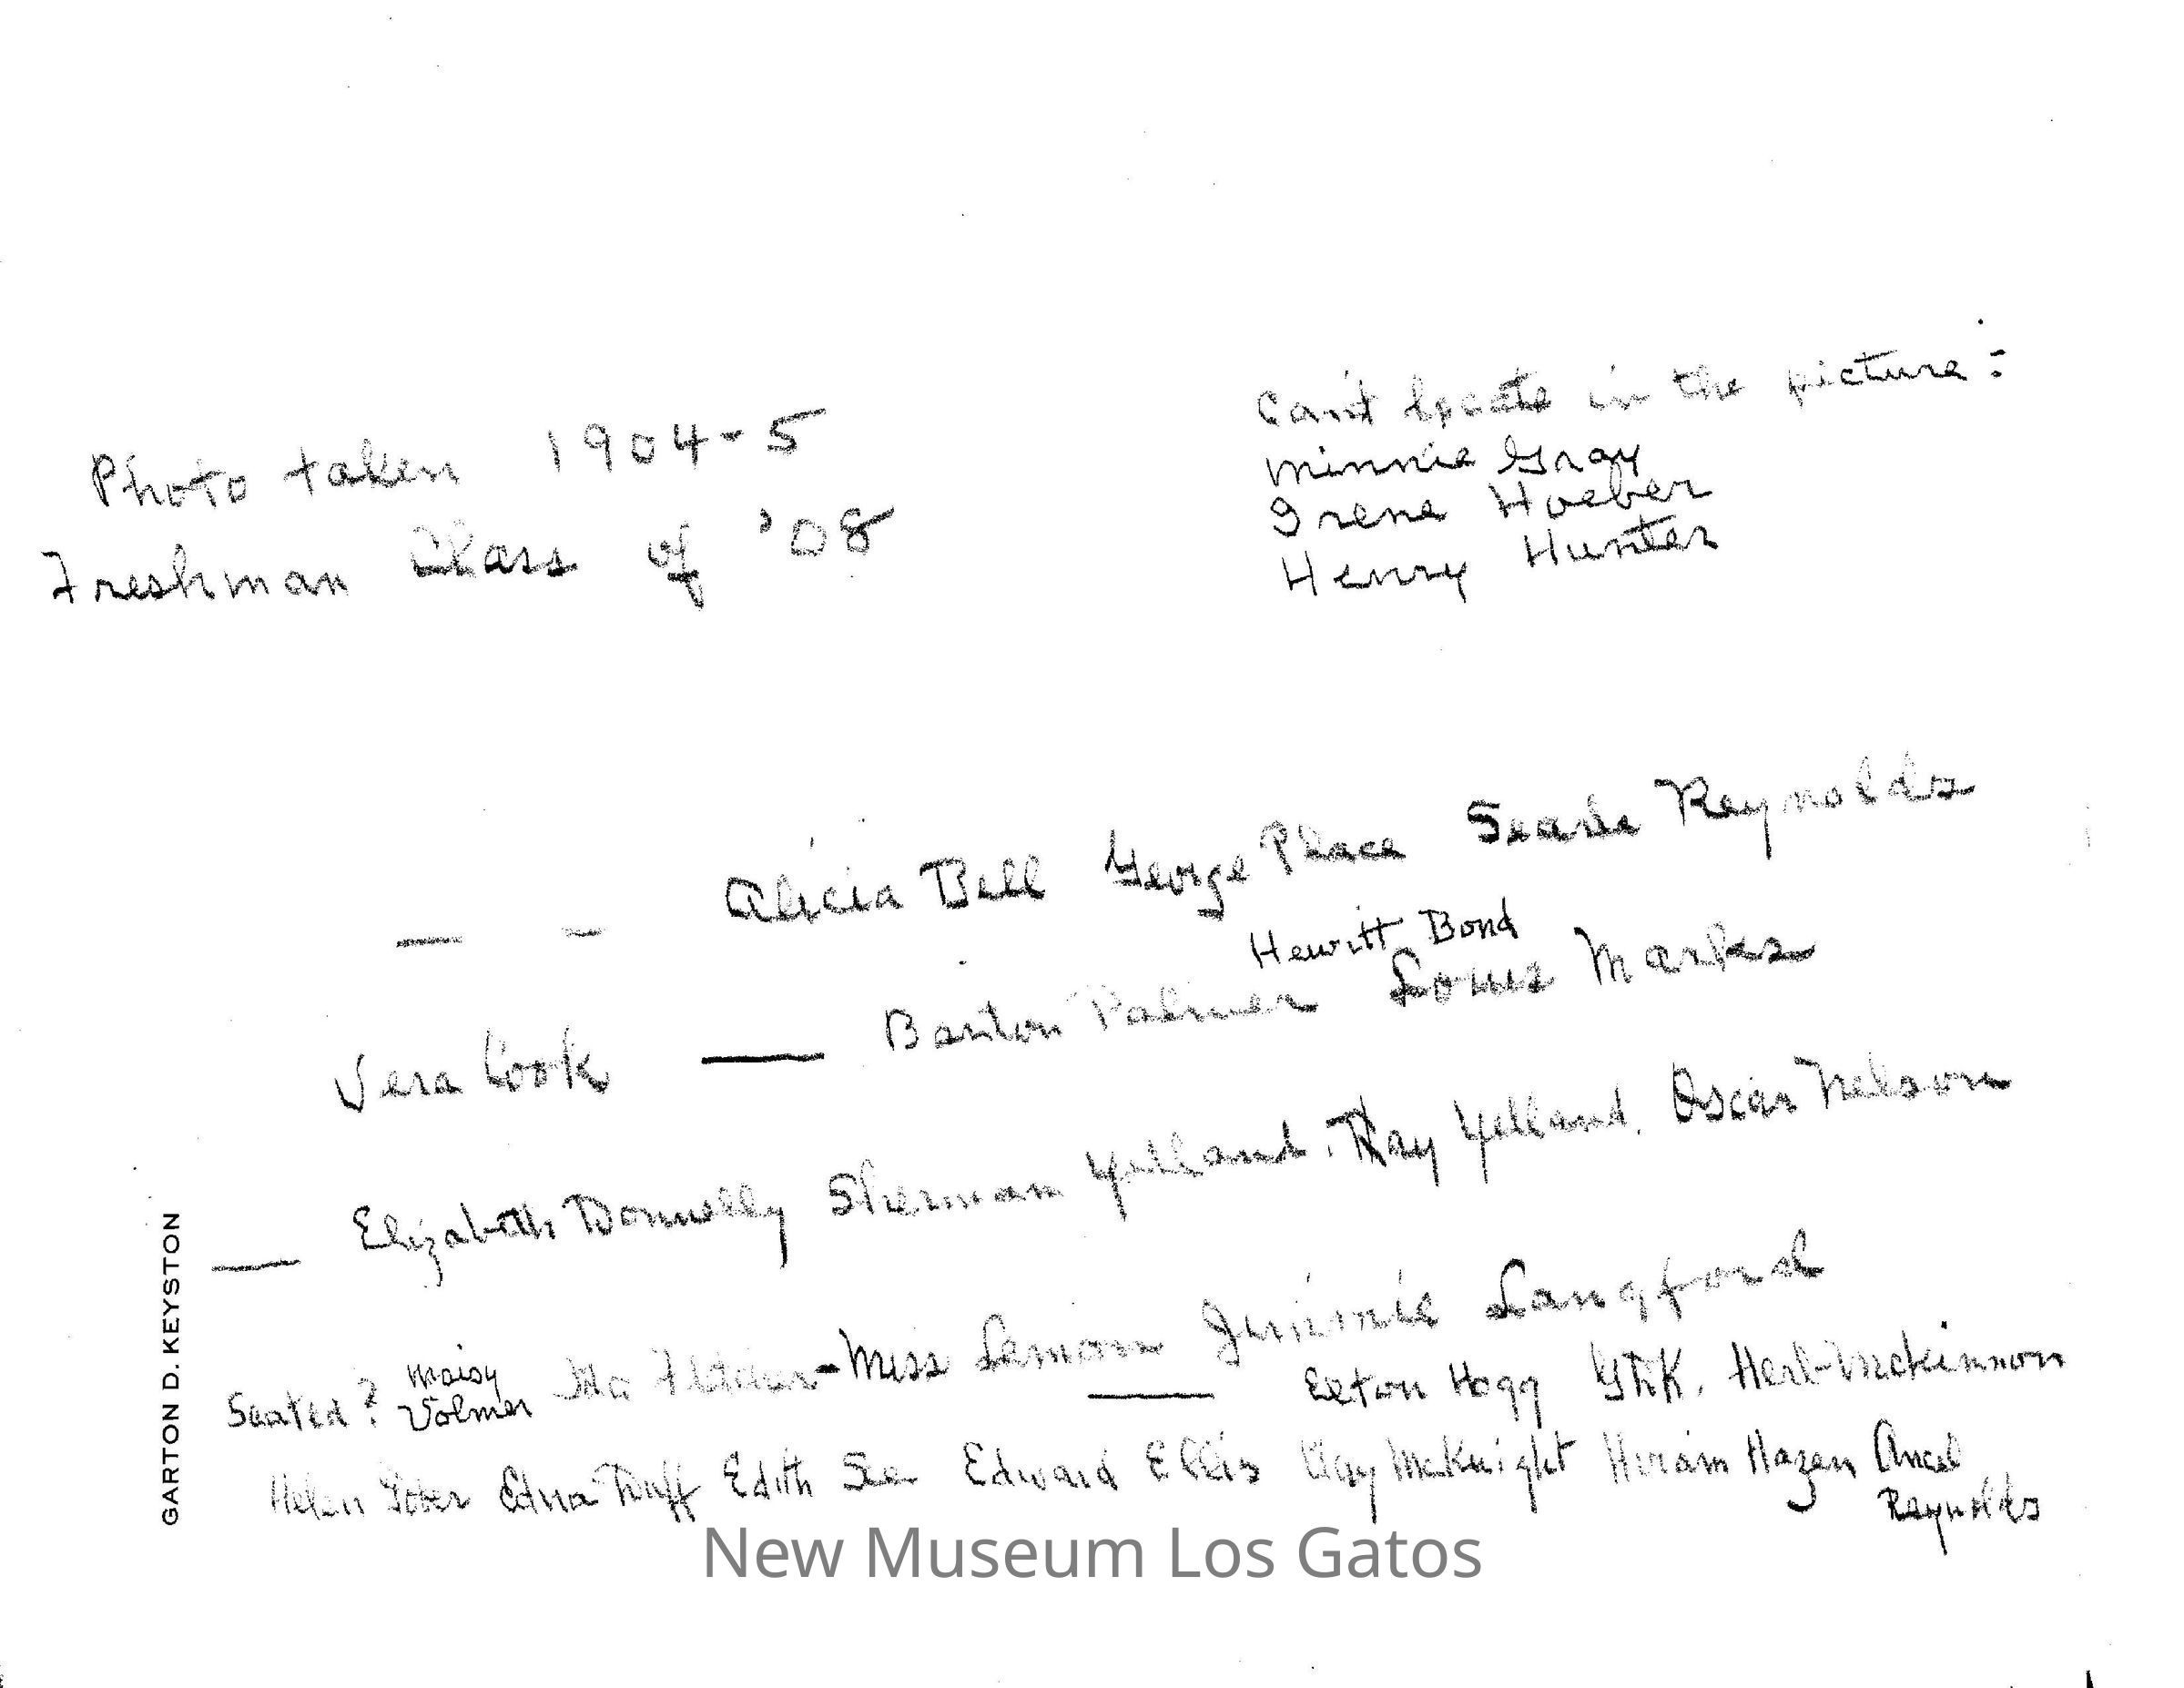 Photo taken 1904-5
Freshman Class of '08
Can't locate in the picture:
Minnie Gray
Irene Hoeber
Henry Hunter
— – Alicia Bell George Place Searle Reynolds
Hewitt Bond
Vera Cook — Barton Palmer Louis Marks
— Elizabeth Donnelly Sherman Yelland. Ray Yelland. Oscar Nelson
Seated? Maisy Volmer Ida Fletcher - Miss Lamon — Jimmie Langford
Elton Hogg G.D.K. Herb McKinnon
Helen Yoder Edna Duff Edith See Edward Ellis Clay McKnight Hiram Hazen Ancel
Reynolds
GARTON D. KEYSTON
New Museum Los Gatos